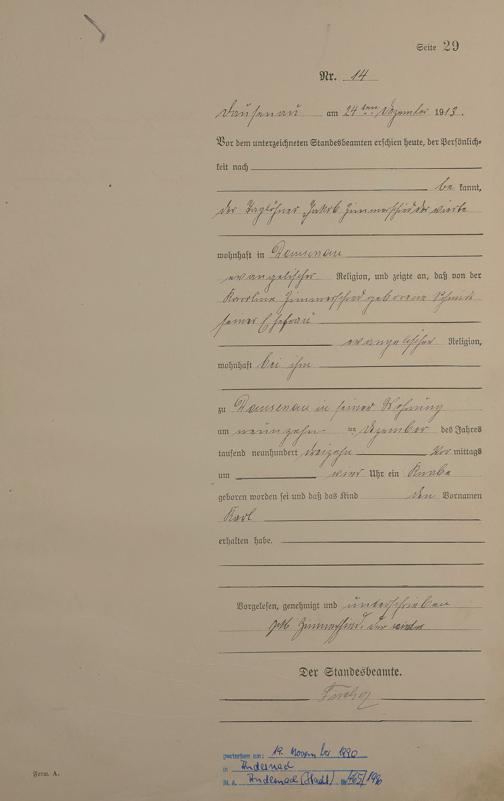 Seite 29
Nr. 14
Dausenau am 24ten Dezember 1913.
Vor dem unterzeichneten Standesbeamten erschien heute, der Persönlich-
keit nach
be kannt,
der Taglöhner Jakob Zimmerschied der vierte
wohnhaft in Dausenau
evangelischer Religion, und zeigte an, daß von der
Karoline Zimmerschied geborene Schmidt
seiner Ehefrau
evangelischer Religion,
wohnhaft bei ihm
zu Dausenau in seiner Wohnung
am neunzehn ten Dezember des Jahres
tausend neunhundert dreizehn Vor mittags
um vier Uhr ein Knabe
geboren worden sei und daß das Kind den Vornamen
Karl
erhalten habe.
Vorgelesen, genehmigt und unterschrieben
Jakob Zimmerschied der vierte
Der Standesbeamte.
gestorben am: 19. November 1990
in Andernach
St. A. Andernach (Stadt)
Form. A.